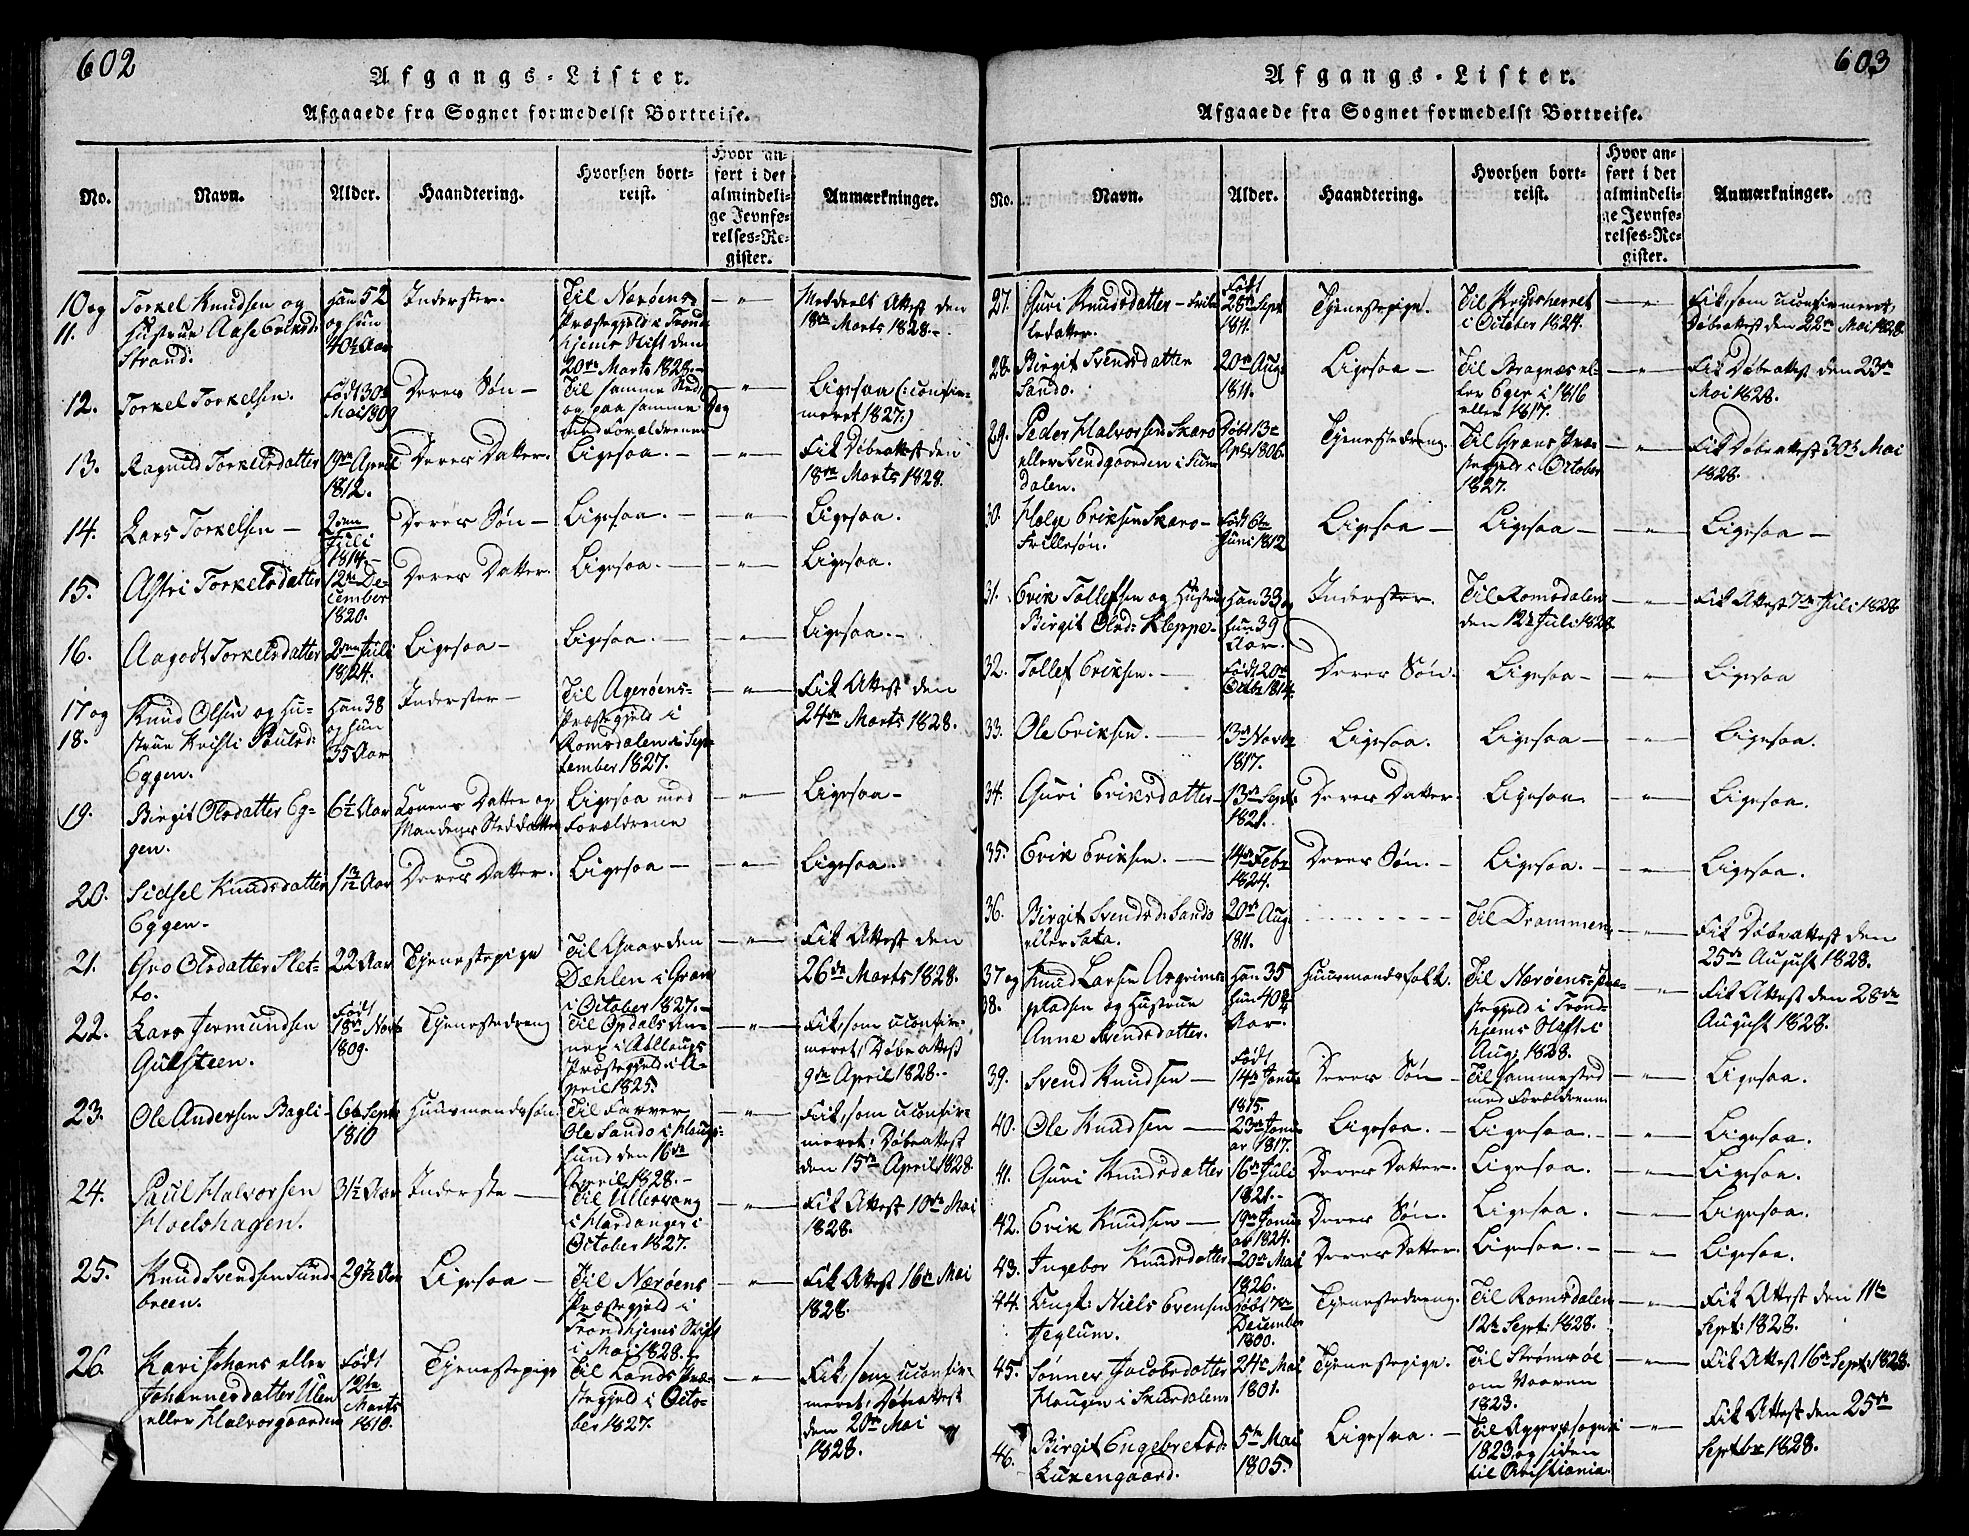 602
Afgangs-Lister.
Afgaaede fra Sognet formedelst Bortreise.
No.
Navn.
Alder.
Haandtering.
Hvorhen bort-
reist.
Hvor an-
ført i det
almindeli-
ge Jevnfø-
relses-Re-
gister.
Anmærkninger.
10 og
11.
Torkel Knudsen og
Hustrue Aase Eriksd:
Strand.
Han 52
og hun
40½ Aar
Inderster.
Til Nærøens
Præstegjeld i Trond-
hjems Stift den
20de Marts 1828.
— " —
Meddeelt Attest den
18de Marts 1828.
12.
Torkel Torkelsen.
Født 30te
Mai 1809
Deres Søn —
Til samme Sted
og paa samme Dag
med Forældrene
— " —
Ligesaa (: confir-
meret 1827:)
13.
Ragnild Torkelsdatter
19de April
1812.
Deres Datter.
Ligesaa. —
— " —
Fik Døbeattest den
18de Marts 1828.
14.
Lars Torkelsen —
2den
Juli
1814. —
Deres Søn —
Ligesaa. —
— " —
Ligesaa.
15.
Astri Torkelsdatter
12te De-
cember
1820.
Deres Datter.
Ligesaa. —
— " —
Ligesaa.
16.
Aagodt Torkelsdatter
2den Juli
1824.
Ligesaa —
Ligesaa. —
— " —
Ligesaa. —
17 og
18.
Knud Olsen og Hu-
strue Kristi Paulsd:
Eggen.
Han 38
og hun
35 Aar
Inderster —
Til Agerøens
Præstegjeld i
Romsdalen i Sep-
tember 1827.
— " —
Fik Attest den
24de Marts 1828.
19.
Birgit Olsdatter Eg-
gen.
6½ Aar
Konens Datter og
Mandens Steddatter
Ligesaa med
Forældrene
— " —
Ligesaa —
20.
Sidsel Knudsdatter
Eggen.
Aar
Deres Datter.
Ligesaa —
— " —
Ligesaa. —
21.
Gro Olsdatter Slet-
to.
22 Aar
Tjenestepige
Til Gaarden
Dæhlen i Gran
i October 1827. —
— " —
Fik Attest den
26de Marts 1828.
22.
Lars Jermundsen
Gulsteen.
Født
18de Novb
1809.
Tjenestedreng
Til Opdals An-
nex i
Præstegjeld i A-
pril 1825.
— " —
Fik, som uconfir-
meret, Døbeattest
9de April 1828. —
23.
Ole Andersen Bagli —
6te Septb
1810
Huusmandssøn
Til Farver
Ole Sando i Houg-
sund den 16de
April 1828. —
— " —
Fik, som uconfir-
meret, Døbeattest
den 15de April 1828.
24.
Paul Halvorsen
Hoelshagen.
31½ Aar
Inderste —
Til Ullensvang
i Hardanger i
October 1827.
— " —
Fik Attest 10de Mai
1828.
25.
Knud Svendsen Sund-
breen.
Aar
Ligesaa —
Til Nærøens
Præstegjeld i
Trondhjems Stift
i Mai 1828. —
— " —
Fik Attest 16de Mai
1828.
26.
Kari Johans eller
Johannesdatter Ulen
eller Halvorgaarden
Født
12te
Marts
1810.
Tjenestepige
Til Lands Præ-
stegjeld i Octo-
ber 1827.
— " —
Fik, som uconfir-
meret, Døbeattest
den 20de Mai
1828.
603
Afgangs-Lister.
Afgaaede fra Sognet formedelst Bortreise.
No.
Navn.
Alder.
Haandtering.
Hvorhen bort-
reist.
Hvor an-
ført i det
almindeli-
ge Jevnfø-
relses-Re-
gister.
Anmærkninger.
27.
Guri Knudsdatter — Fril-
ledatter.
Født
28de Sept
1811.
Tjenestepige.
Til Krydsherret
i October 1824.
— " —
Fik, som uconfirmeret,
Døbeattest den 22de Mai 1828.
28.
Birgit Svendsdatter
Sando.
20de Aug.
1811.
Ligesaa —
Til Bragnæs el-
ler Eger i 1816
eller 1817.
— " —
Fik Døbeattest den 23de
Mai 1828.
29.
Peder Halvorsen Skaro
eller Svendgaarden i Skur-
dalen.
Døbt 13de
1806.
Tjenestedreng.
Til Grans Præ-
stegjeld i October
1827.
— " —
Fik Døbeattest 30te Mai
1828.
30.
Helge Eriksen Skaro —
Frillesøn.
Født 6te
Juni 1812
Ligesaa —
Ligesaa —
— " —
Ligesaa —
31.
Erik Tollefsen og Hustrue
Birgit Olsd: Kleppe —
Han 33 og
hun 39
Aar.
Inderster.
Til Romsdalen
den 12te Juli 1828
— " —
Fik Attest 7de Juli 1828
32.
Tollef Eriksen. —
Født 20de
Octbr 1814.
Deres Søn.
Ligesaa —
— " —
Ligesaa
33.
Ole Eriksen. —
13de Novbr
1817.
Ligesaa.
Ligesaa —
— " —
Ligesaa.
34.
Guri Eriksdatter —
13de Septb
1821.
Deres Datter.
Ligesaa.
— " —
Ligesaa.
35.
Erik Eriksen. —
14de Febr
1824.
Deres Søn. —
Ligesaa. —
— " —
Ligesaa.
36.
Birgit Svendsd: Sando
eller Sata.
20de Aug.
1811.
- - - - - - - -
Til Drammen
— " —
Fik Døbeattest den
25de August 1828.
37 og
38.
Knud Larsen Asgrims-
pladsen og Hustrue
Anne Svendsdatter.
Han 35
hun
Aar.
Huusmandsfolk.
Til Nærøens Præ-
stegjeld i Trond-
hjems Stift i
Aug. 1828.
— " —
Fik Attest den 28de
August 1828.
39.
Svend Knudsen —
Født
14de Janu-
1815.
Deres Søn —
Til samme sted
med Forældrene
— " —
Ligesaa.
40.
Ole Knudsen —
23de Janu-
ar 1817.
Ligesaa. —
Ligesaa. —
— " —
Ligesaa.
41.
Guri Knudsdatter
16de Juli
1821. —
Deres Datter.
Ligesaa.
— " —
Ligesaa.
42.
Erik Knudsen —
19de Janu-
ar 1824.
Deres Søn.
Ligesaa.
— " —
Ligesaa.
43.
Ingebor Knudsdatter
20de Mai
1826.
Deres Datter.
Ligesaa. —
— " —
Ligesaa.
44.
Ungk: Niels Evensen
Jeglum.
Døbt 7de
December
1800.
Tjenestedreng.
Til Romsdalen
12te Sept: 1828.
— " —
Fik Attest den 11te
Sept: 1828.
45.
Sønnev Jacobsdatter
Haugen i Skurdalen
24de Mai
1801.
Tjenestepige.
Til Strømsøe
om Vaaren
1823.
— " —
Fik Attest 16de Sept: 1828.
46.
Birgit Engebretsd:
Luxengaard.
5te Mai
1805.
Ligesaa. —
Til Aggersogn i
1823 og siden
til Christiania.
— " —
Fik Attest den 25de
Septbr 1828.